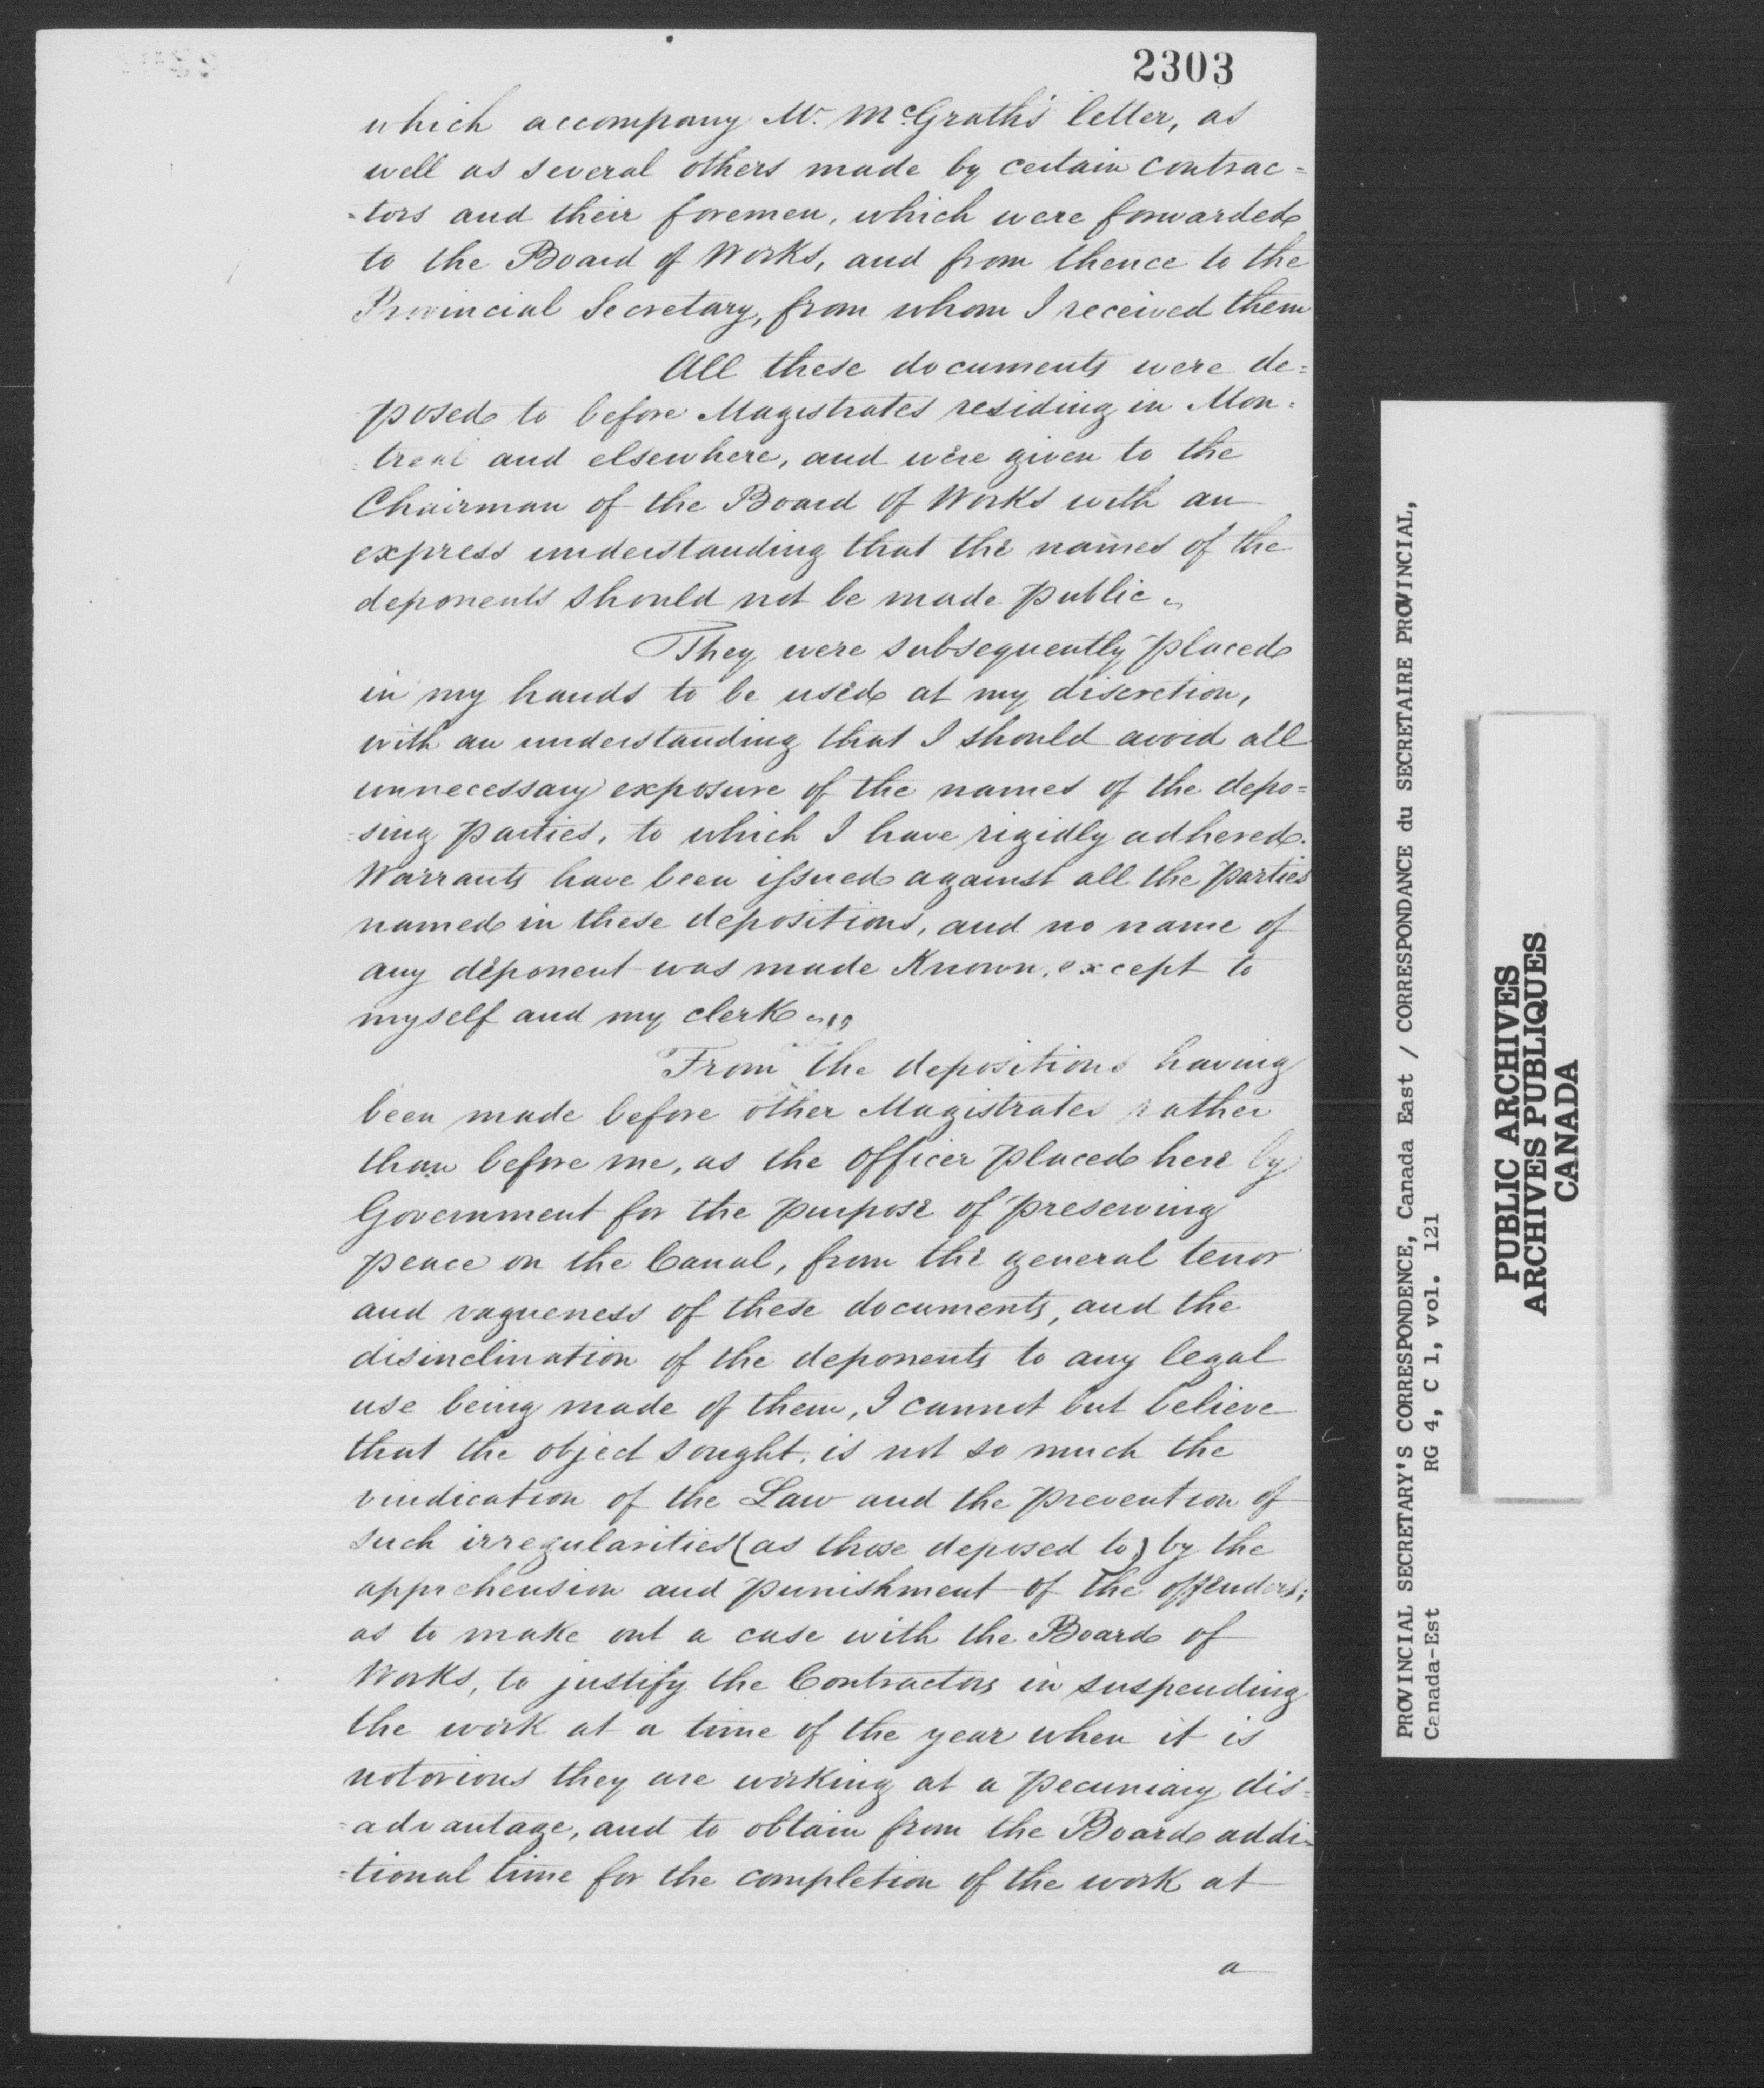 2303
which accompany Mr. McGrath's letter, as
well as several others made by certain contrac=
=tors and their foremen, which were forwarded
to the Board of Works, and from thence to the
Provincial Secretary, from whom I received them
All these documents were de=
posed to before Magistrates residing in Mon=
=treal and elsewhere, and were given to the
Chairman of the Board of Works with an
express understanding that the names of the
deponents should not be made public.
They were subsequently placed
in my hands to be used at my discretion,
with an understanding that I should avoid all
unnecessary exposure of the names of the depo=
=sing parties, to which I have rigidly adhered.
Warrants have been issued against all the parties
named in these depositions, and no name of
any deponent was made Known, except to
myself and my clerk.
From the depositions having
been made before other Magistrates rather
than before me, as the officer placed here by
Government for the purpose of preserving
peace on the Canal, from the general tenor
and vagueness of these documents, and the
disinclination of the deponents to any legal
use being made of them, I cannot but believe
that the object sought, is not so much the
vindication of the Law and the prevention of
such irregularities (as those deposed to) by the
apprehension and punishment of the offenders;
as to make out a case with the Board of
Works, to justify the Contractors in suspending
the work at a time of the year when it is
notorious they are working at a pecuniary dis=
=advantage, and to obtain from the Board addi=
=tional time for the completion of the work at
a
PROVINCIAL SECRETARY'S CORRESPONDENCE, Canada East / CORRESPONDANCE du SECRETAIRE PROVINCIAL,
Canada-Est RG 4, C 1, vol. 121
PUBLIC ARCHIVES
ARCHIVES PUBLIQUES
CANADA